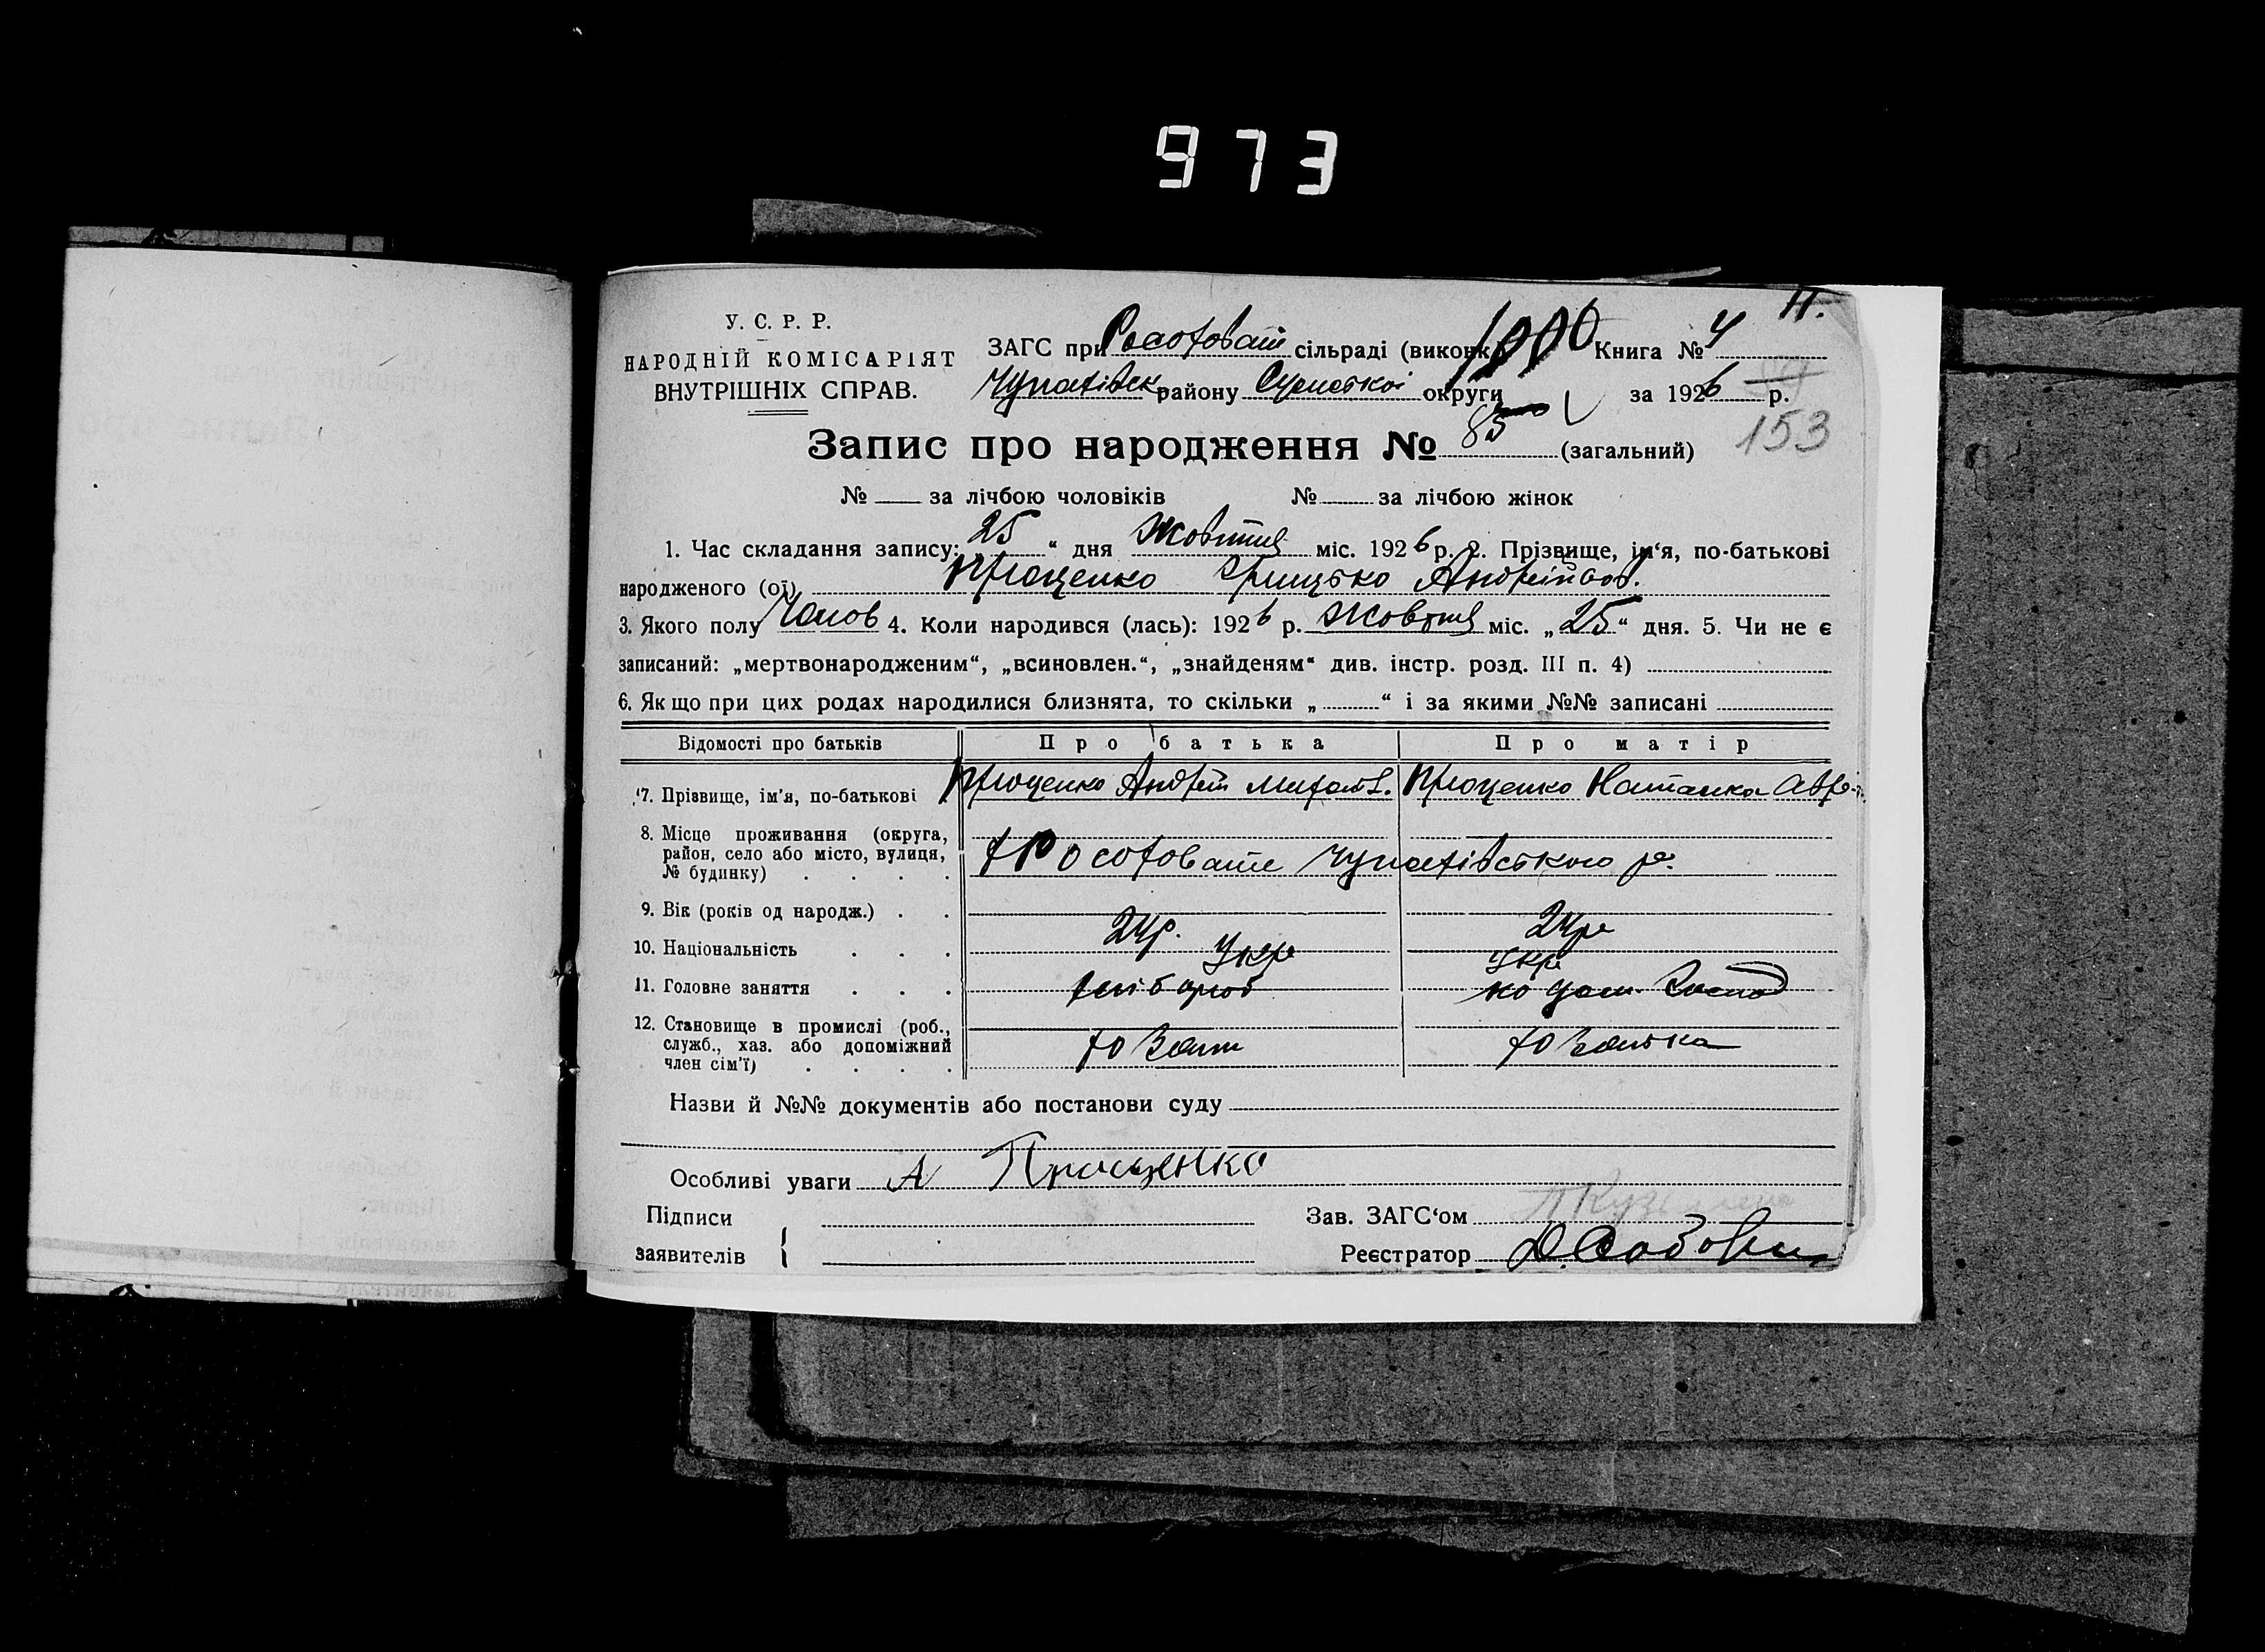 973
Н.
У. С. Р. Р.
НАРОДНІЙ КОМІСАРІЯТ
ВНУТРІШНІХ СПРАВ.
ЗАГС при сільраді (виконк. 1000 Книга № 4
Чупахівськ району Сумської округи за 1926 р.
153
Запис про народження № 85 (загальний)
№ за лічбою чоловіків № за лічбою жінок
1. Час складання запису: 25 “ дня Жовтня міс. 1926 р. 2. Прізвище, ім‘я, по-батькові
народженого (ої) Проценко Грицько Андрійов.
3. Якого полу Чолов 4. Коли народився (лась): 1926 р. Жовтня міс. „ 25 “ дня. 5. Чи не є
записаний: „мертвонародженим“, „всиновлен.“, „знайденям“ див. інстр. розд. III п. 4)
6. Якщо при цих родах народилися близнята, то скільки „ “ і за якими №№ записані
Відомості про батьків Про батька Про матір
7. Прізвище, ім'я, по-батькові Проценко Андрій Михайл. Проценко Наталка
8. Місце проживання (округа,
район, село або місто, вулиця,
№ будинку)
Чупахівського р.
9. Вік (років од народж.)
24р. 24р
10. Національність
Укр Укр
11. Головне заняття хлібороб по дом. Господ
12. Становище в промислі (роб.,
служб., хаз. або допоміжний
член сім'ї)
хозяін хозяйка
Назви й №№ документів або постанови суду
Особливі уваги А Проценко
Підписи
заявителів {
Зав. ЗАГС‘ом
Реєстратор